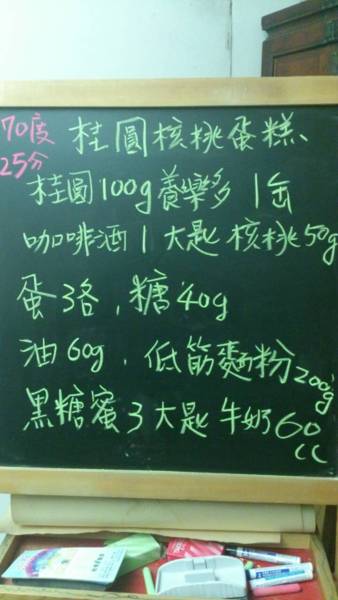 70度 桂圓核桃蛋糕
25分
桂圓100g養樂多1缶
咖啡酒1大匙核桃50g
蛋3洛,糖40g
油60g,低筋麵粉200g
黑糖蜜3大匙牛奶60cc